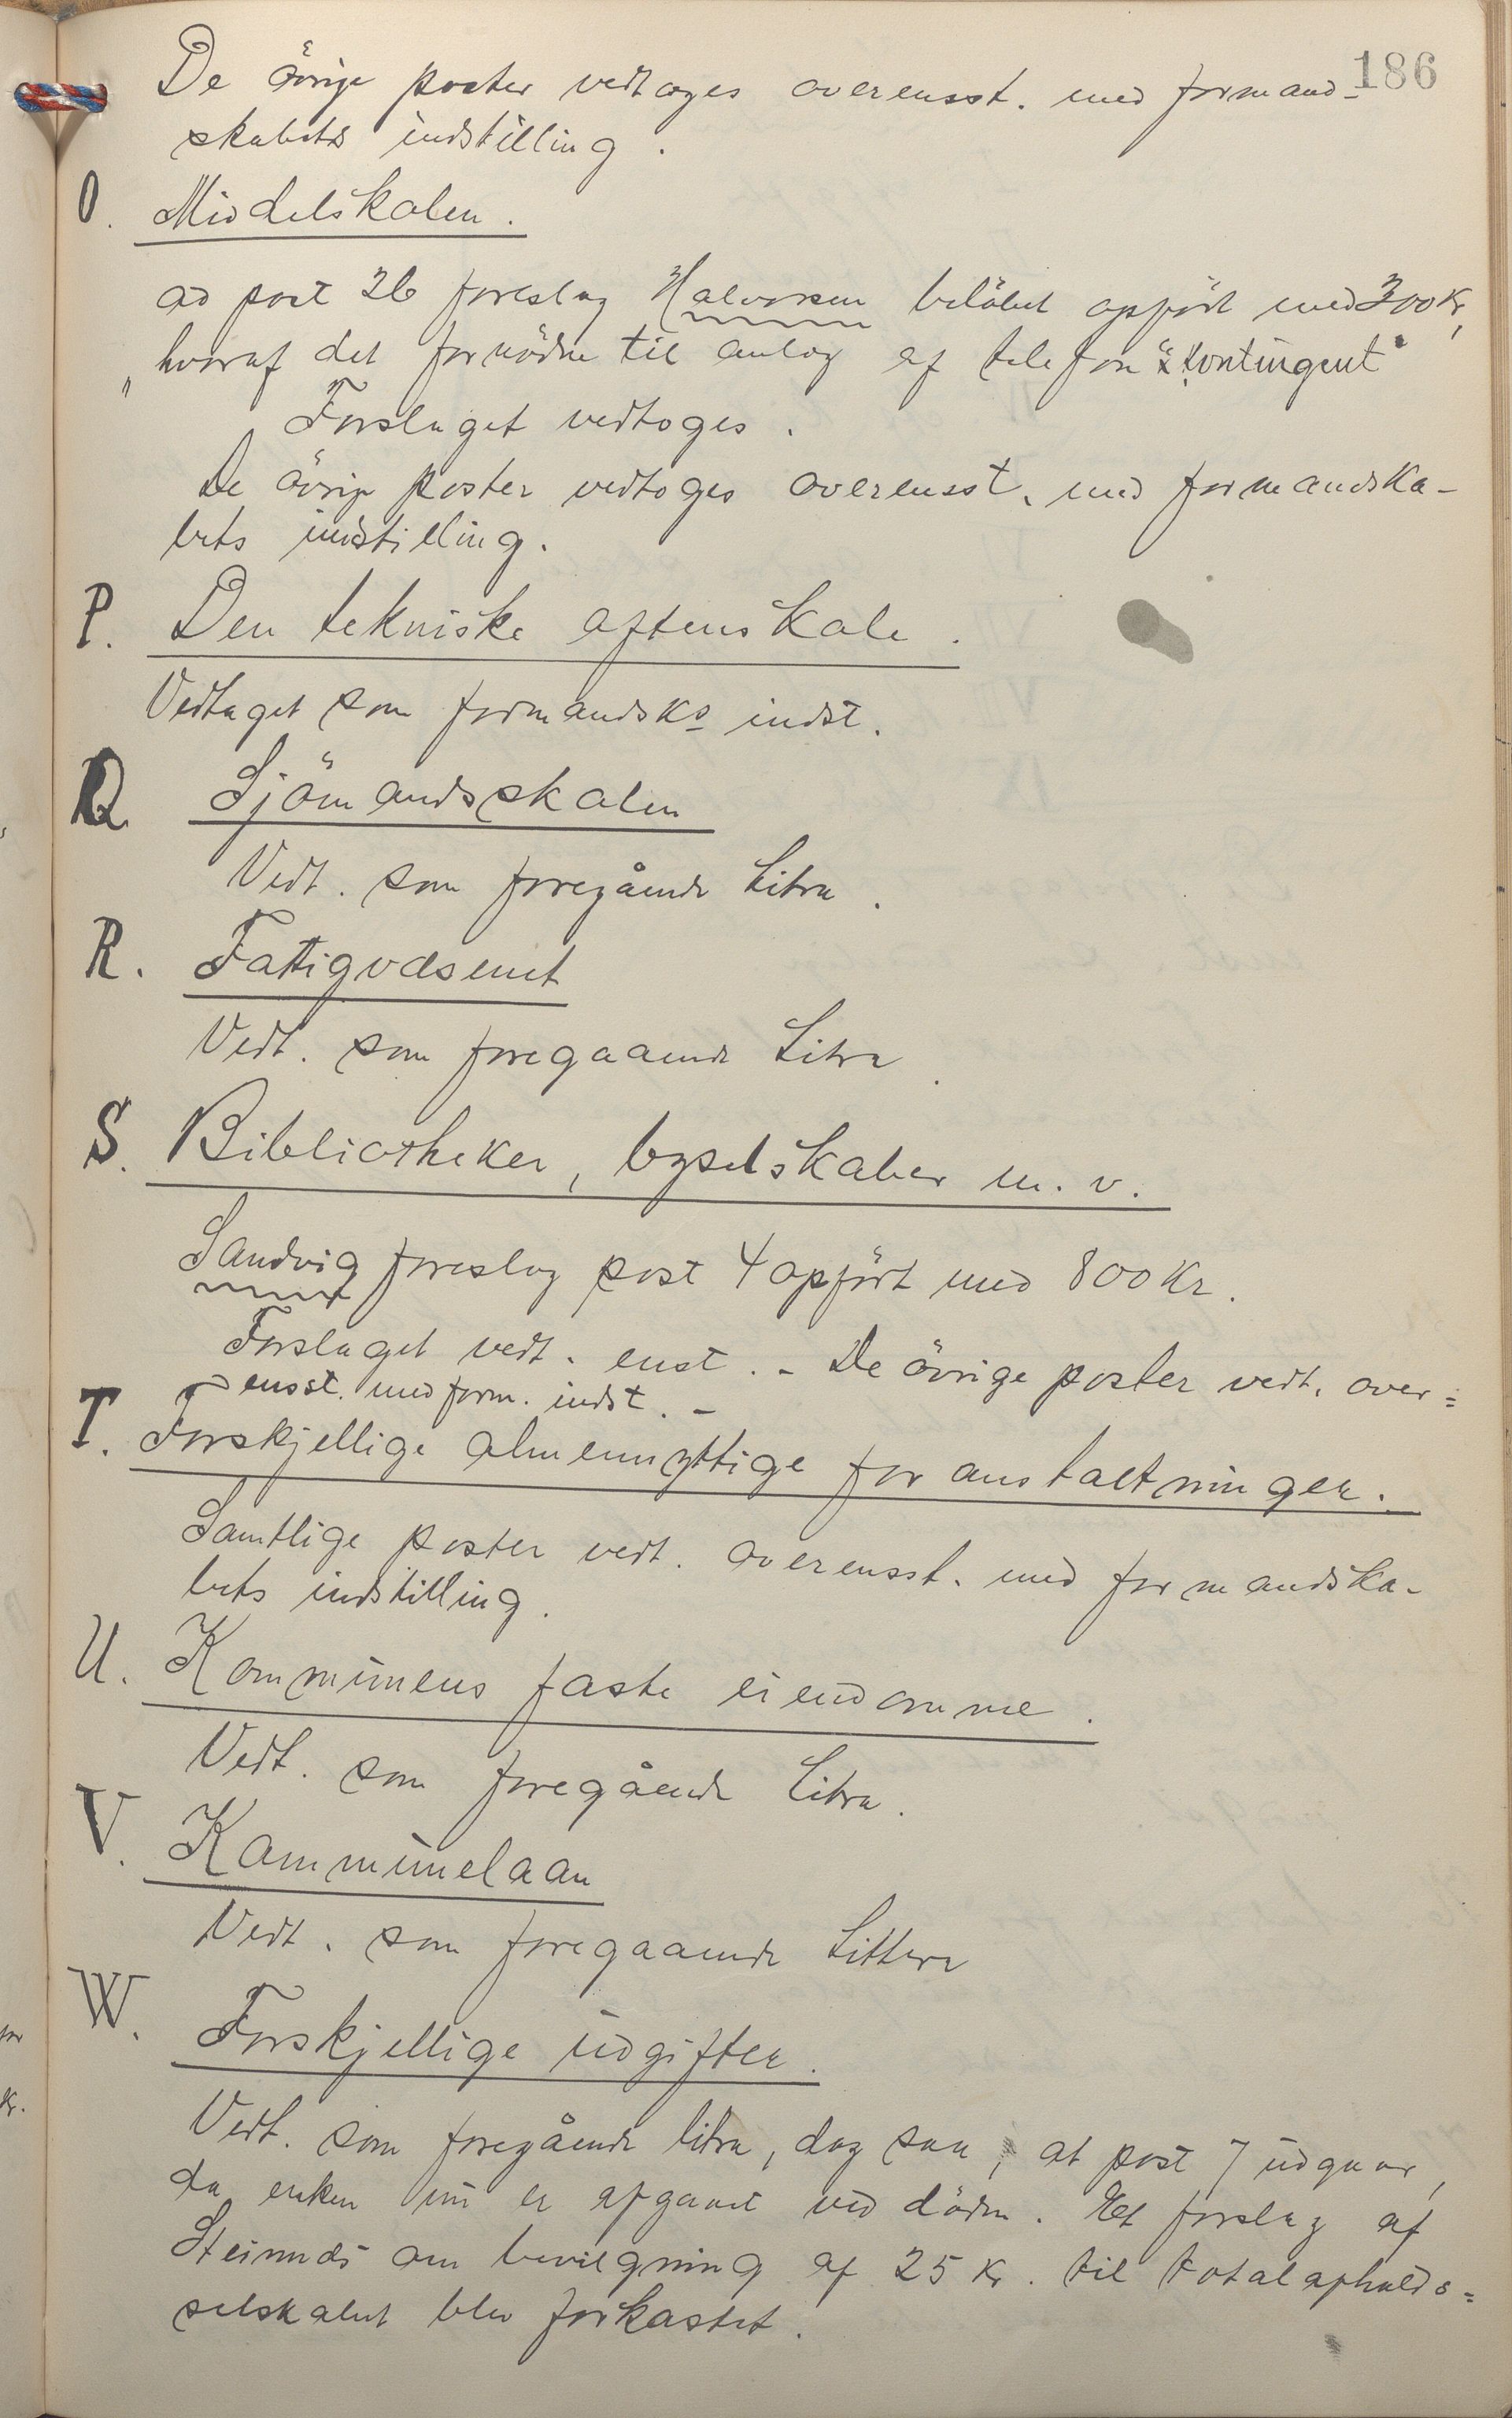 186
De övrige poster vedtoges overensst. med formand-
skabets indstilling.
O. Middelskolen.
ad post 26 foreslog Halvorsen belöbet opfört med 300 Kr,
"hvoraf det fornödne til anlæg af telefon & kontingent"
Forslaget vedtoges.
De övrige poster vedtoges overensst. med formandska-
bets indstilling.
P. Den tekniske aftenskole.
Vedtaget som formandsks indst.
Q Sjömandsskolen
Vedt. som foregående Litra.
R. Fattigvæsenet
Vedt. som foregaaende Litra.
S. Bibliotheker, byselskaber m. v.
Sandvig foreslog post 4 opfört med 800 Kr.
Forslaget vedt. enst. - De övrige poster vedt. over=
ensst. med form. indst. -
T. Forskjellige almennyttige foranstaltninger.
Samtlige poster vedt. overensst. med formandska-
bets indstilling.
U. Kommunens faste eiendomme.
Vedt. som foregående Litra.
V. Kommunelaan
Vedt. som foregaaende Littera
W. Forskjellige udgifter.
Vedt. som foregående litra, dog saa, at post 7 udgaar,
da enken nu er afgaaet ved döden. Et forslag af
om bevilgning af 25 Kr. til totalafholds=
selskabet blev forkastet.